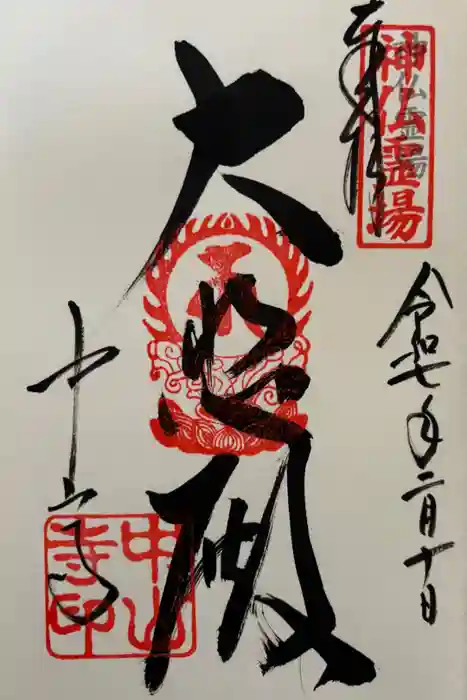 奉拝
神仏霊場
令和七年二月十日
大悲閣
中山寺
中山寺印